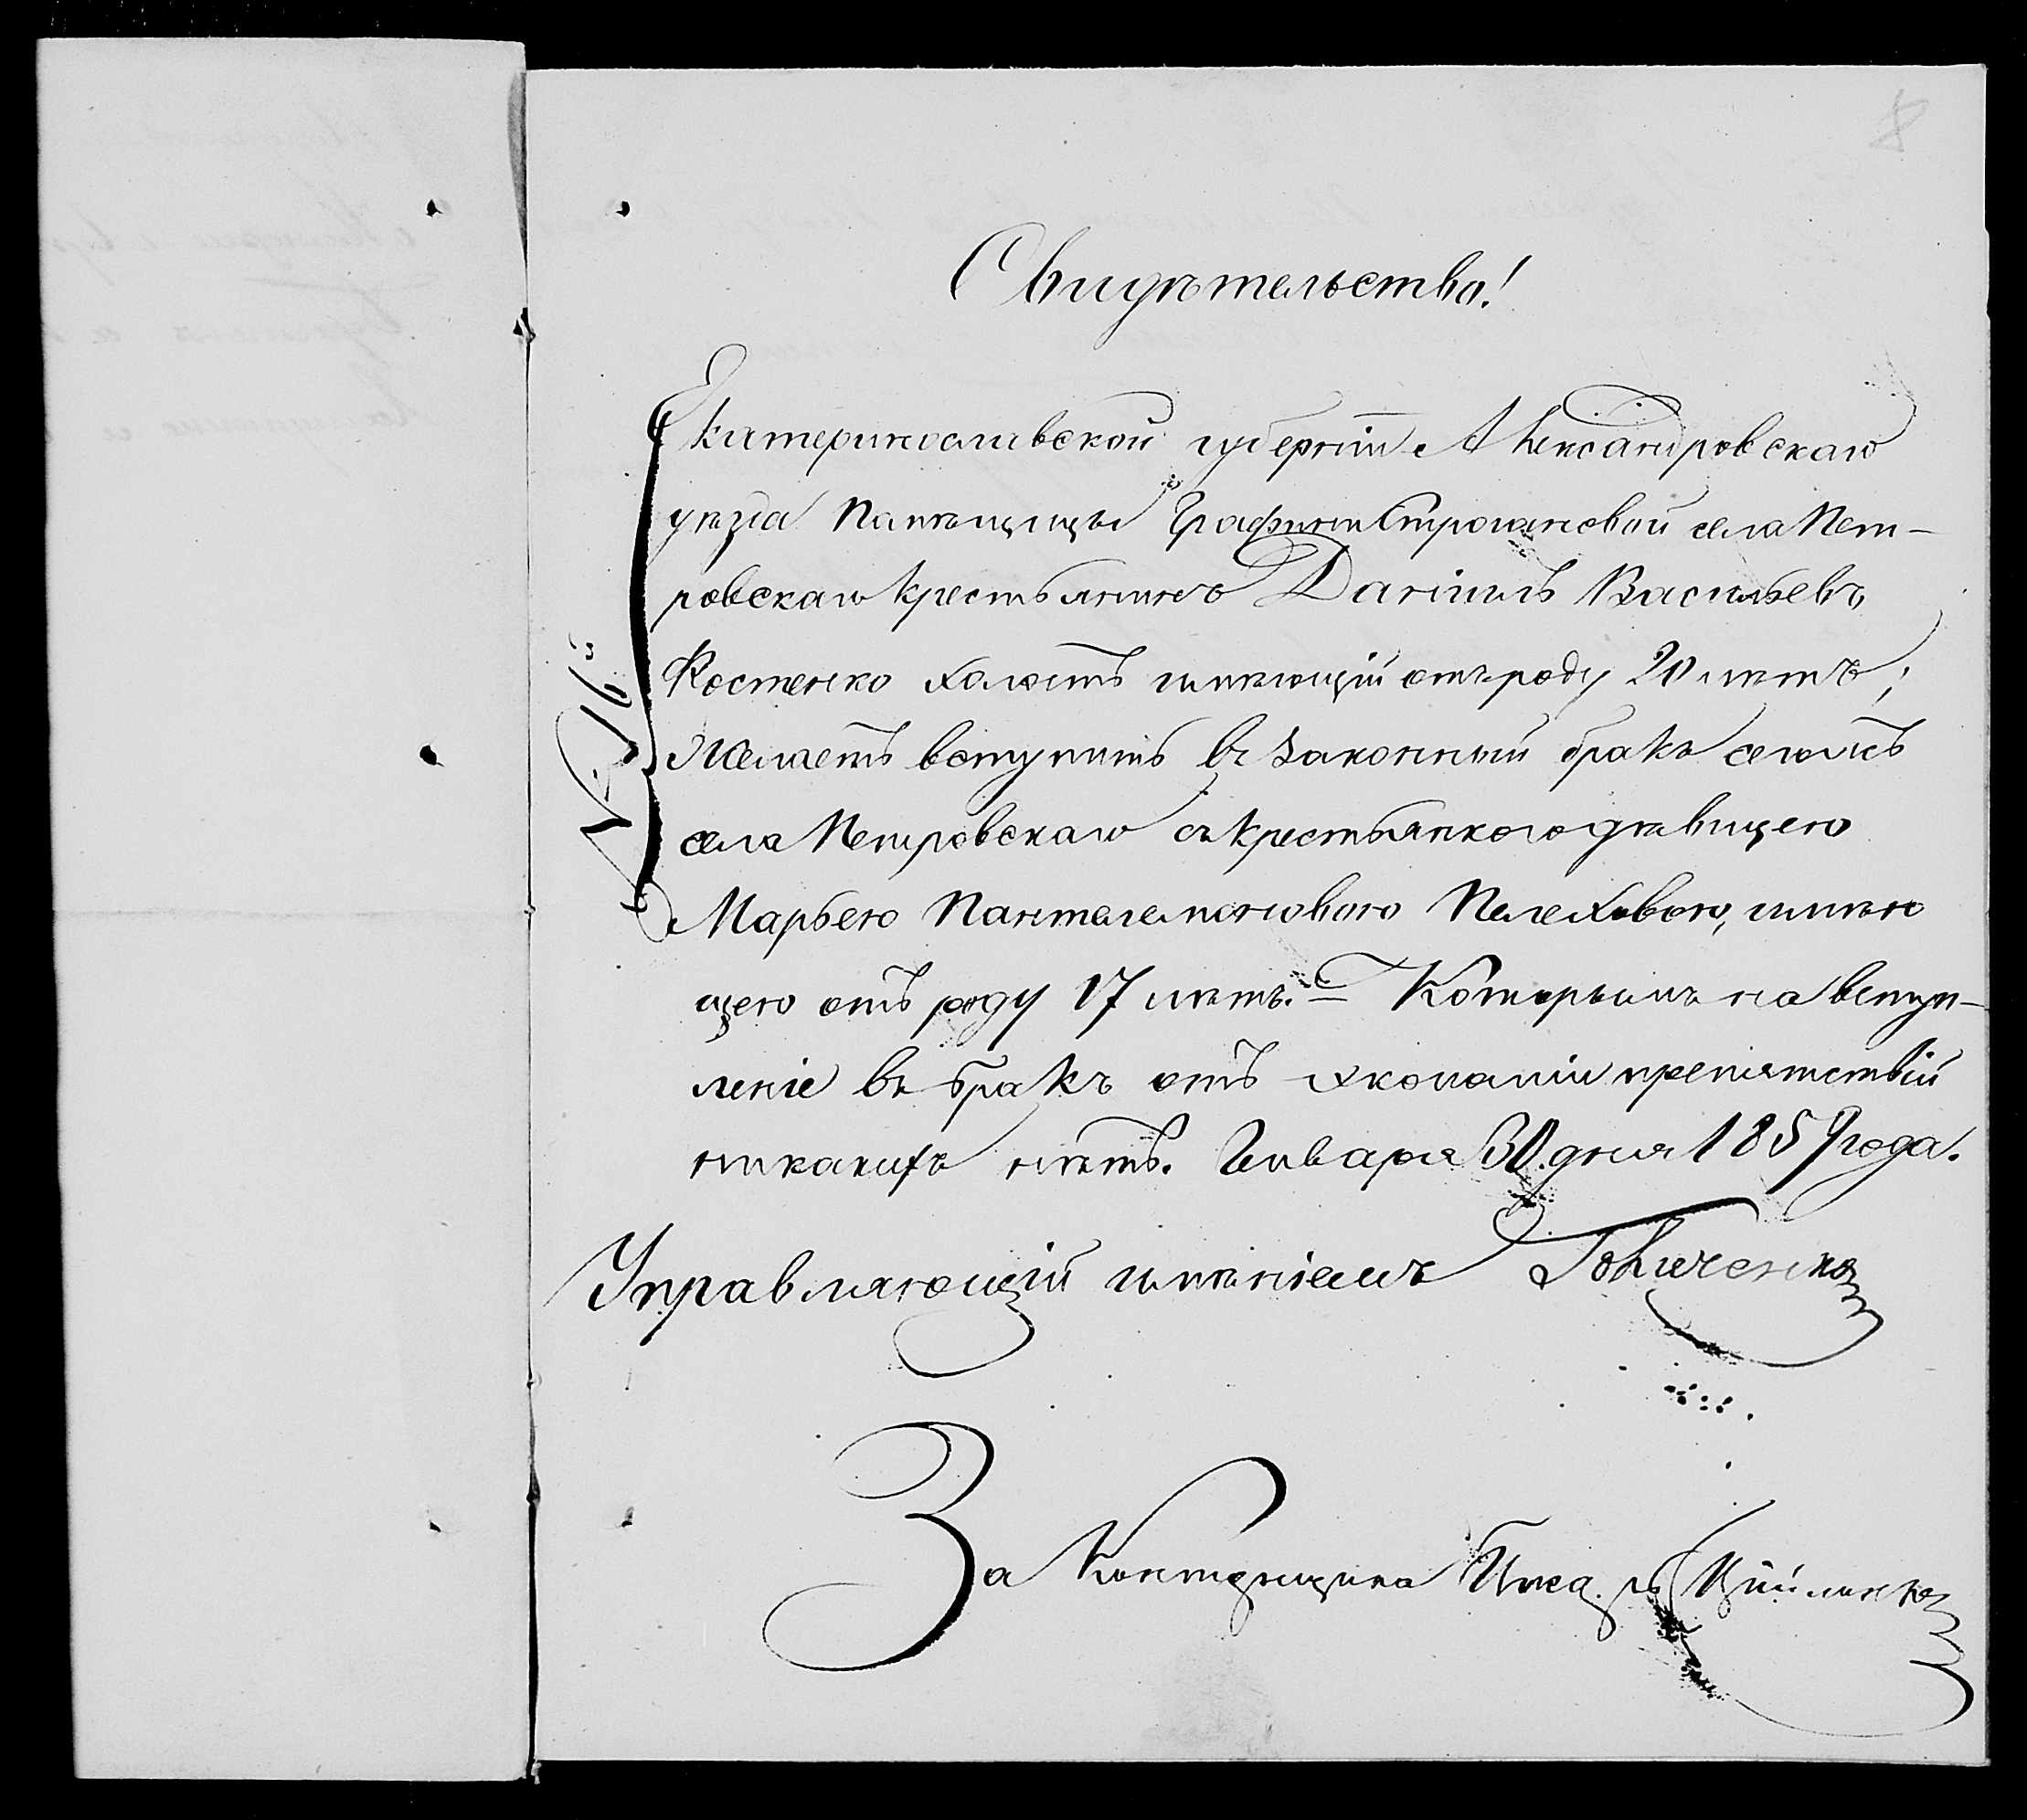 8
Свидѣтельство!
Екатеринославской губерніи Александровскаго
уѣзда Помѣщицы Графини Строгановой села Пет-
ровскаго крестьянинъ Даніилъ Васильевъ
Костенко холостъ имѣющій отъ роду 20 лѣтъ;
Желаетъ вступить въ законный бракъ сегожъ
села Петровскаго съ крестьянкою дѣвицею
Марьею Панталемоновою Пелеховою, имѣю
щею отъ роду 17 лѣтъ. = Которымъ на вступ-
леніе въ бракъ отъ экономіи препятствій
никакихъ нѣтъ. Генваря 30 дня 1859 года.
№ 16й
Управляющій имѣніемъ
За Конторщика